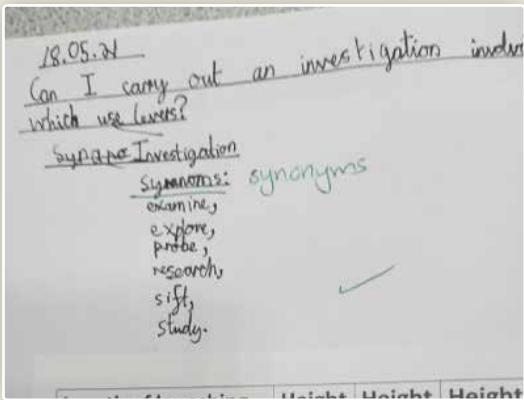 18.05.21
Can I carry out an investigation
which use levers?
Investigation
synonyms
examine,
explore,
probe,
research,
sift,
study.
Height Height Height